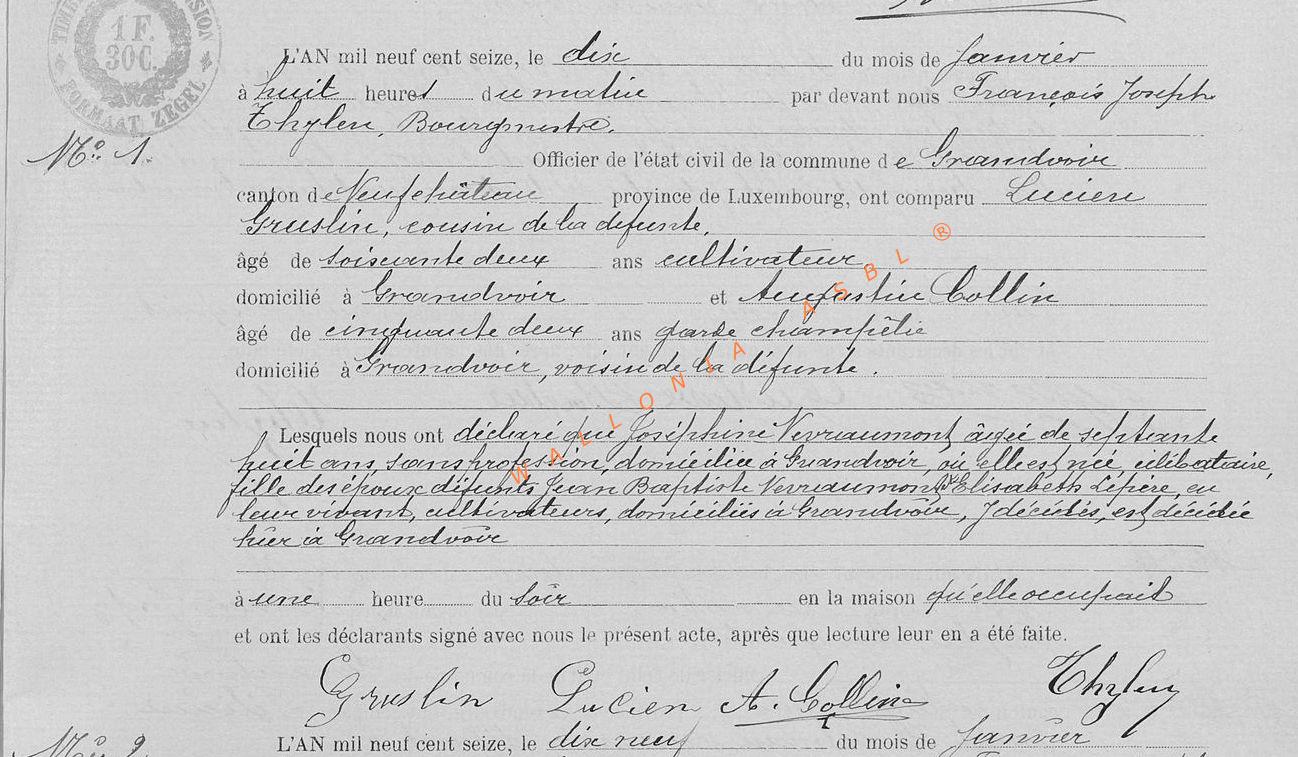 1 F.
30C.
FORMAAT ZEGEL
L'AN mil neuf cent seize, le dix du mois de Janvier
à huit heures du matin par devant nous François Joseph
Thylen, Bourgmestre.
No 1.
Officier de l'état civil de la commune de Grandvoir
canton de Neufchâteau province de Luxembourg, ont comparu Lucien
Gruslin, cousin de la défunte,
âgé de soixante deux ans cultivateur
domicilié à Grandvoir et Augustin Collin
âgé de cinquante deux ans garde champêtre
domicilié à Grandvoir, voisin de la défunte.
Lesquels nous ont déclaré que Joséphine Nevraumont, âgée de septante
huit ans, sans profession, domiciliée à Grandvoir, où elle est née, célibataire,
fille des époux défunts Jean Baptiste Nevraumont et Elisabeth Lepère, en
leur vivant, cultivateurs, domiciliés à Grandvoir, y décédés, est décédée
hier à Grandvoir
à une heure du soir en la maison qu'elle occupait
et ont les déclarants signé avec nous le présent acte, après que lecture leur en a été faite.
Gruslin Lucien A. Collin Thylen
No 2
L'AN mil neuf cent seize, le dix neuf du mois de Janvier
WALLONIA ASBL ®